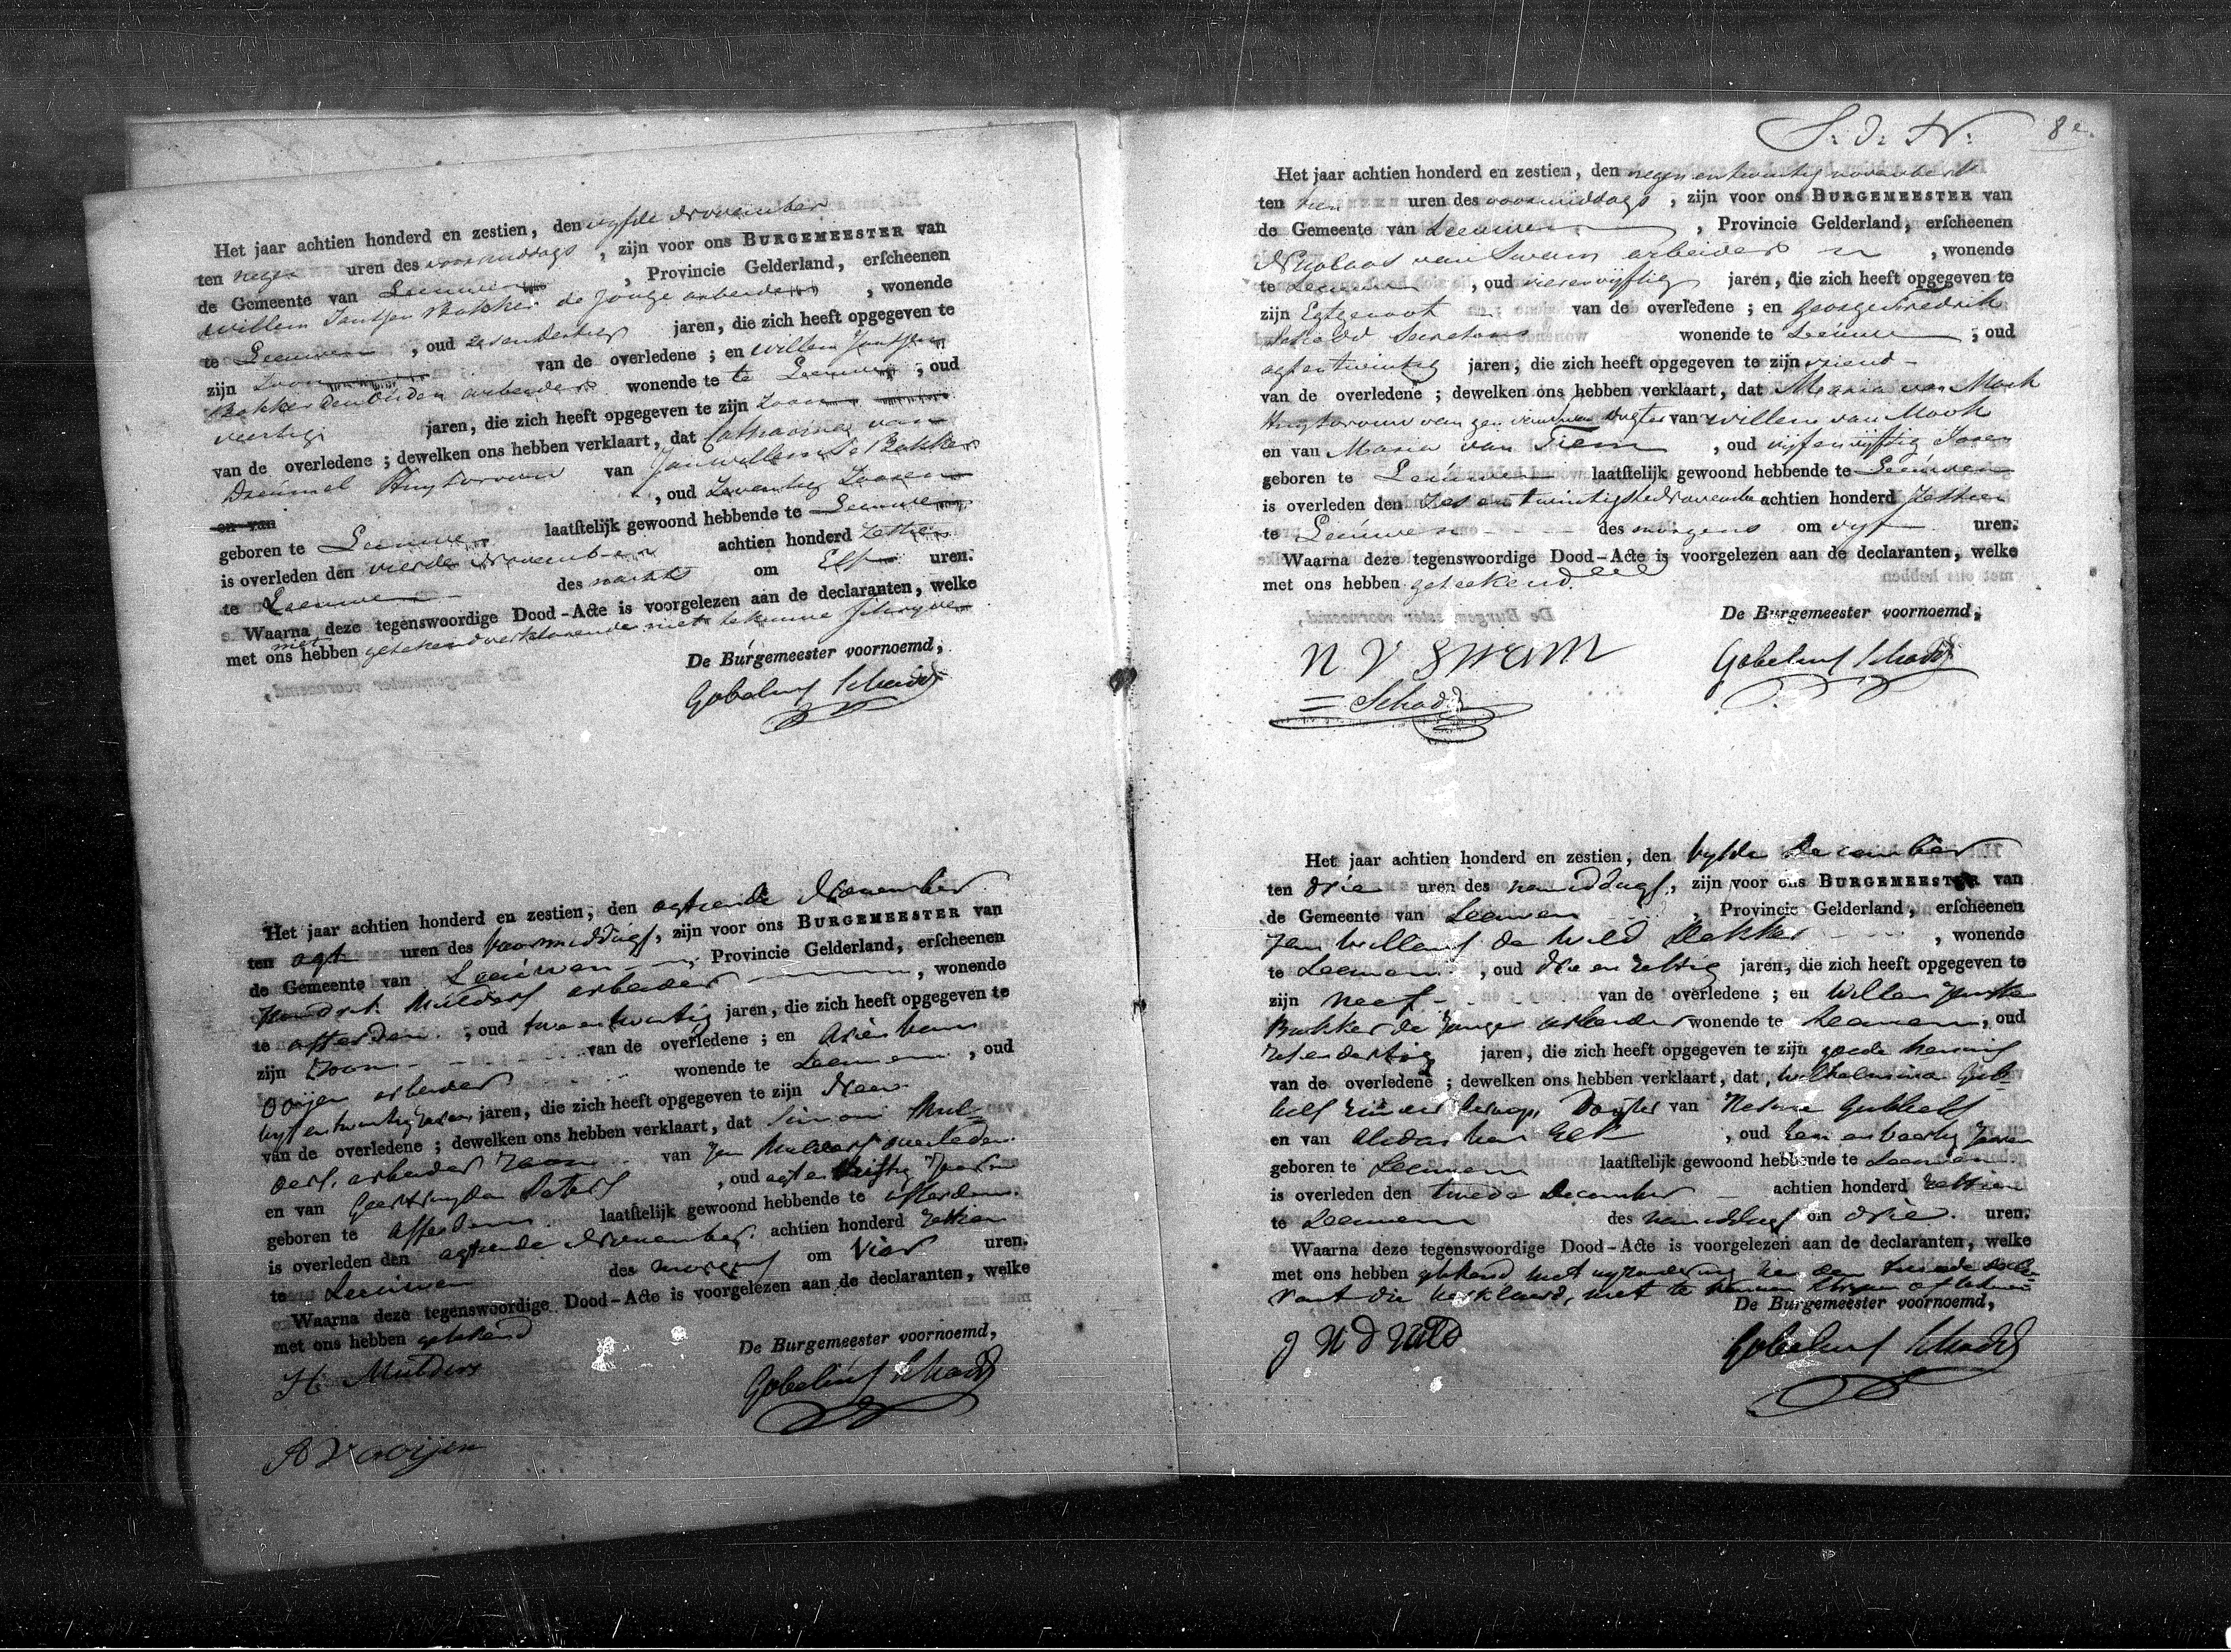 Het jaar achtien honderd en zestien, den vyfde November
ten negen uren des voormiddags, zijn voor ons BURGEMEESTER van
de Gemeente van Leeuwen, Provincie Gelderland, erscheenen
Willem Jantsen Bakker de jonge arbeider, wonende
te Leeuwen, oud zesendertig jaren, die zich heeft opgegeven te
zijn Zoon van de overledene; en Willem Jantsen
Bakker den Ouden arbeider wonende te te Leeuwen; oud
veertig jaren, die zich heeft opgegeven te zijn Zoon
van de overledene; dewelken ons hebben verklaart, dat Catharina van
Dreumel Huysvrouw van Jan Willem De Bakker
en van , oud Zeventig Jaaren
geboren te Leeuwen laatstelijk gewoond hebbende te Leeuwen
is overleden den vierde November achtien honderd Zestien
te Leeuwen des nachts om Elf uren.
Waarna deze tegenswoordige Dood-Acte is voorgelezen aan de declaranten, welke
met ons niet hebben getekend verklarende niet te kunne schryven
De Burgemeester voornoemd,
Gobelius Schadd
Het jaar achtien honderd en zestien, den agtiende November
ten agt uren des voormiddags, zijn voor ons BURGEMEESTER van
de Gemeente van Leeuwen, Provincie Gelderland, erscheenen
Hendrik Mulders arbeider, wonende
te afferden, oud twee en twintig jaren, die zich heeft opgegeven te
zijn Zoon van de overledene; en Arien van
Ooijen arbeider wonende te Leeuwen, oud
vyf en twintig Jaren jaren, die zich heeft opgegeven te zijn Neev
van de overledene; dewelken ons hebben verklaart, dat Simon Mul-
ders, arbeider Zoon van Jan Mulders overleden
en van Geertruyda Peters, oud agt en Jaren
geboren te Afferden laatstelijk gewoond hebbende te afferden
is overleden den agtiende November achtien honderd Zestien
te Leeuwen des morgens om Vier uren.
Waarna deze tegenswoordige Dood-Acte is voorgelezen aan de declaranten, welke
met ons hebben getekend
De Burgemeester voornoemd,
H. Mulders
Gobelius Schadd
A V ooijen
S. d. N. 8e.
Het jaar achtien honderd en zestien, den negenentwintig november
ten tien uren des voormiddags, zijn voor ons BURGEMEESTER van
de Gemeente van Leeuwen, Provincie Gelderland, erscheenen
Nicolaas van Swam arbeider, wonende
te Leeuwen, oud vierenvyftig jaren, die zich heeft opgegeven te
zijn Egtgenoot van de overledene; en George Fredrik
Schadd Secretaris wonende te Leeuwen; oud
agtentwintig jaren, die zich heeft opgegeven te zijn vriend
van de overledene; dewelken ons hebben verklaart, dat Maria van Mook
Huysvrouw van dogter van Willem van Mook
en van Maria van Tiem, oud vyfenvyftig Jaren
geboren te Leeuwen laatstelijk gewoond hebbende te Leeuwen
is overleden den Zesentwintigste November achtien honderd Zestien
te Leeuwen des morgens om vyf uren.
Waarna deze tegenswoordige Dood-Acte is voorgelezen aan de declaranten, welke
met ons hebben geteekend
De Burgemeester voornoemd,
N V SWAM
Gobelius Schadd
Schadd
Het jaar achtien honderd en zestien, den Vyfde December
ten drie uren des namiddags, zijn voor ons BURGEMEESTER van
de Gemeente van Leeuwen, Provincie Gelderland, erscheenen
Jan Willem de Wild Dekker, wonende
te Leeuwen, oud drie en Zestig jaren, die zich heeft opgegeven te
zijn neef van de overledene; en Willem Janse
Bakker de Jonge arbeider wonende te Leeuwen, oud
zesendertig jaren, die zich heeft opgegeven te zijn goede kennis
van de overledene; dewelken ons hebben verklaart, dat, Wilhelmina Gub-
bels zonder beroep, Dogter van Gubbels
en van Aldas van Elk, oud Een en veertig Jaren
geboren te Leeuwen laatstelijk gewoond hebbende te Leeuwen
is overleden den tweede December achtien honderd Zestien
te Leeuwen des namiddags om drie uren.
Waarna deze tegenswoordige Dood-Acte is voorgelezen aan de declaranten, welke
met ons hebben getekend met uyzondering van den tweede decla-
rant die verklaard, niet te kunnen
De Burgemeester voornoemd,
J W D WILD
Gobelius Schadd